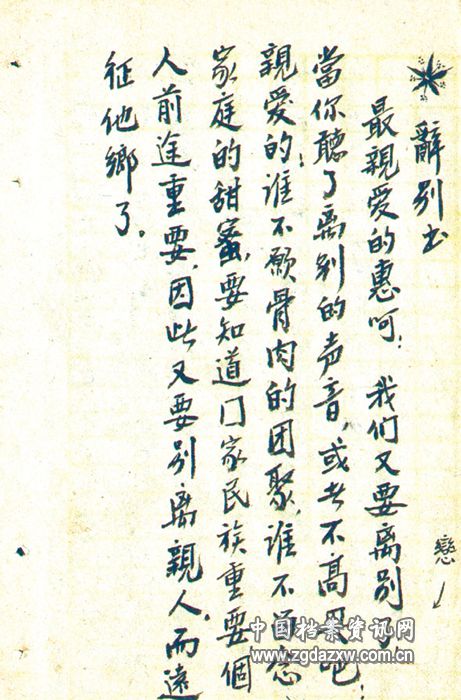 辭别书
最親爱的惠呵：我们又要离别了，
當你聽了离别的声音，或者不高吧：
親爱的，谁不願骨肉的团聚，谁不
戀
家庭的甜蜜，要知道门家民族重要個
人前途重要，因此又要别离親人，而遠
征他鄉了。
中国档案资讯网
www.zgdazxw.com.cn